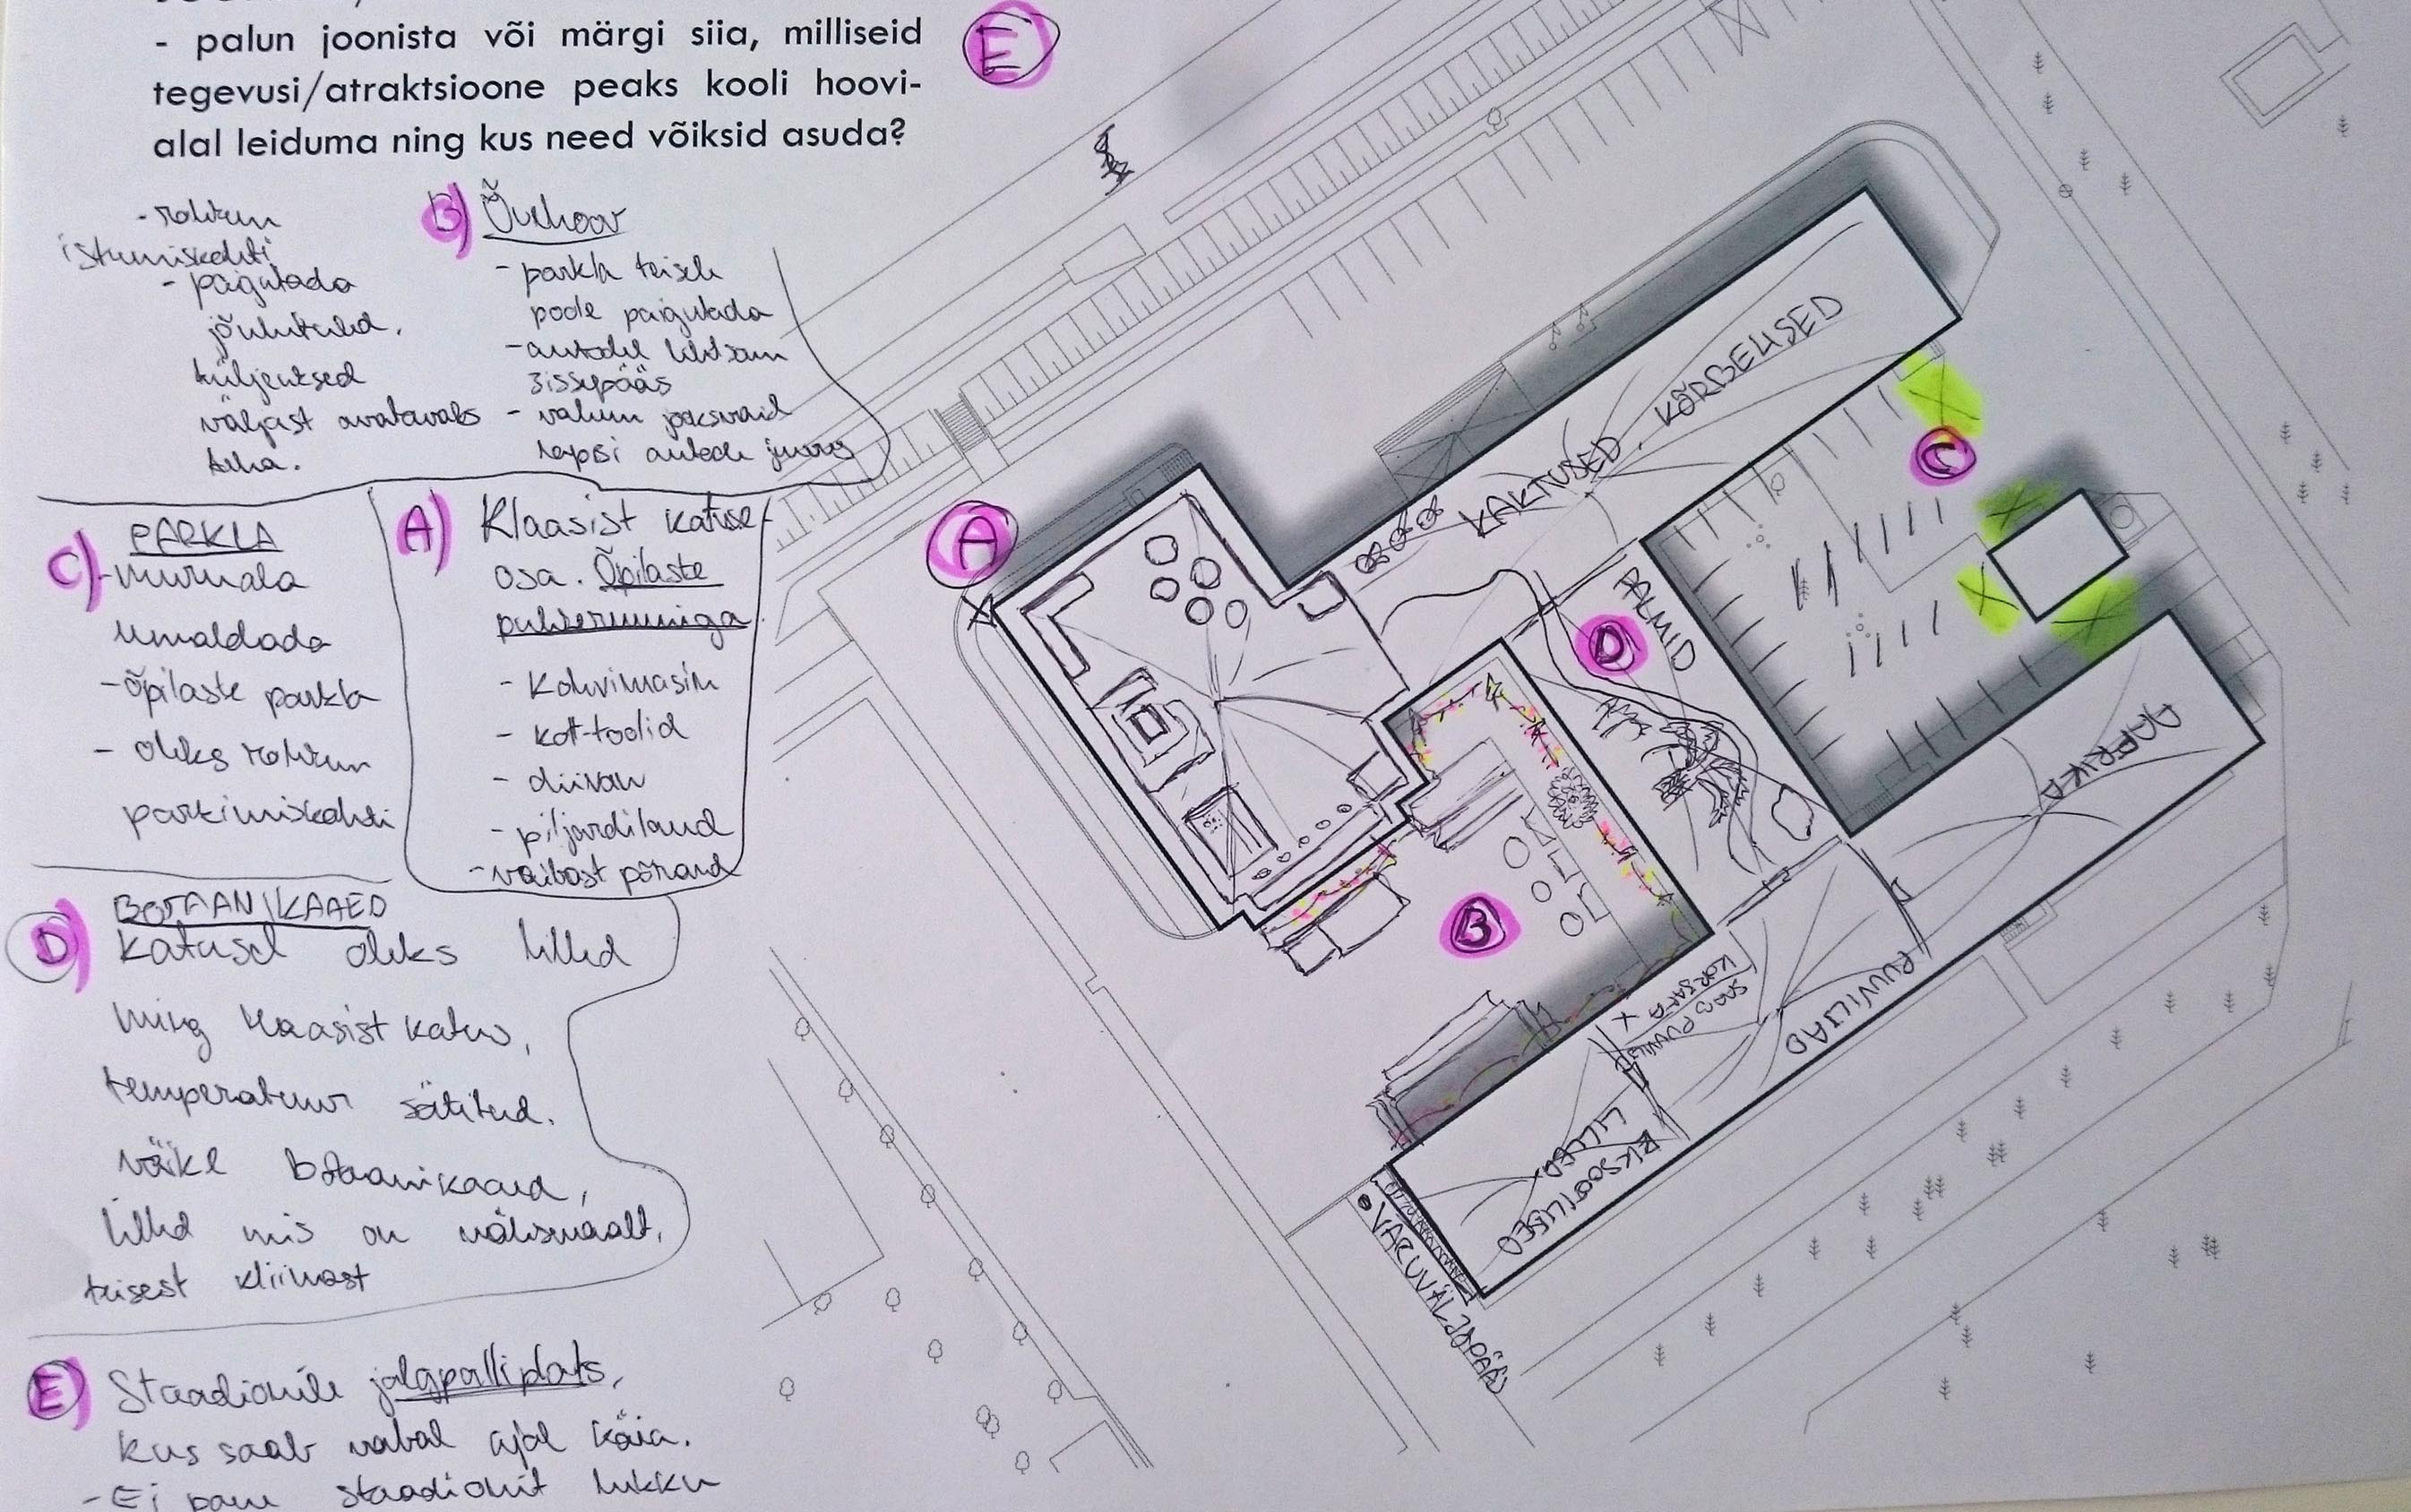 - palun joonista või märgi siia, milliseid
tegevusi/atraktsioone peaks kooli hoovi-
alal leiduma ning kus need võiksid asuda?
E
- rohkem
istumiskohti
- paigutada
jõulutuled.
küljeuksed
väljast avatavaks
teha.
B) Õuehoov
- parkla teisele
poole paigutada
- autodel lihtsam
sissepääs
- vähem jooksvaid
lapsi autode juures
C) PARKLA
- muruala
eemaldada
- õpilaste parkla
- oleks rohkem
parkimiskohti
A) Klaasist katuse
osa. Õpilaste
puhkeruumiga
- Kohvimasin
- kott-toolid
- diivan
- piljardilaud
- vaibast põrand
D) BOTAANIKAAED
Katusel oleks lilled
ning klaasist katus,
temperatuur sätitud.
Väike botaanikaaed,
lilled mis on välismaalt,
teisest kliimast
E) Staadionile jalgpalliplats,
kus saab vabal ajal käia.
- Ei pane staadionit lukku
A
KAKTUSED, KÕRBELISED
C
PALMID
D
B
PAPRIKA
PUUVILJAD
SAAB PUUVILJU
KORJATA X
EKSOOTILISED
LILLED
VARUVÄLJAPÄÄS